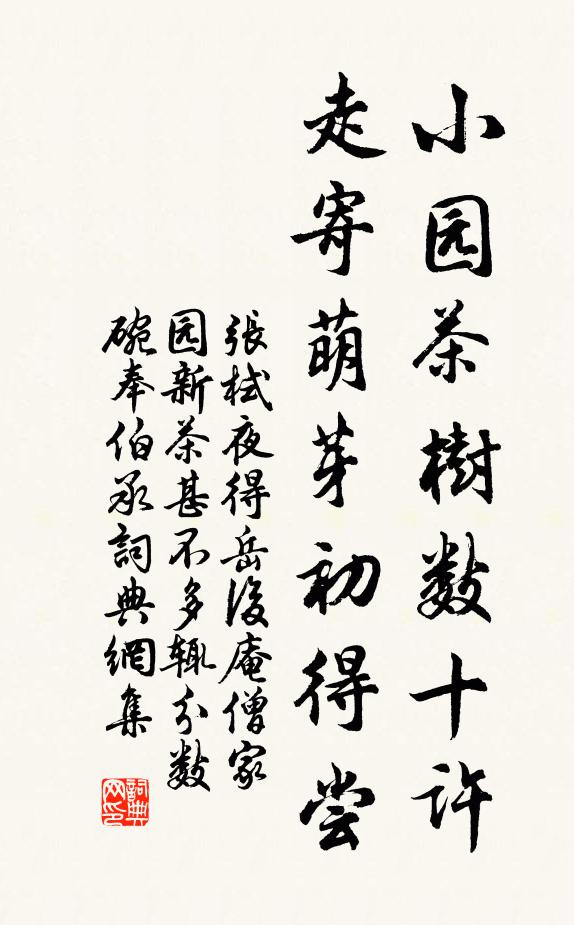 小园茶樹数十許
走寄萌芽初得尝
張栻夜得岳後庵僧家
园新茶甚不多辄分数
碗奉伯承詞典網集
詞典网印